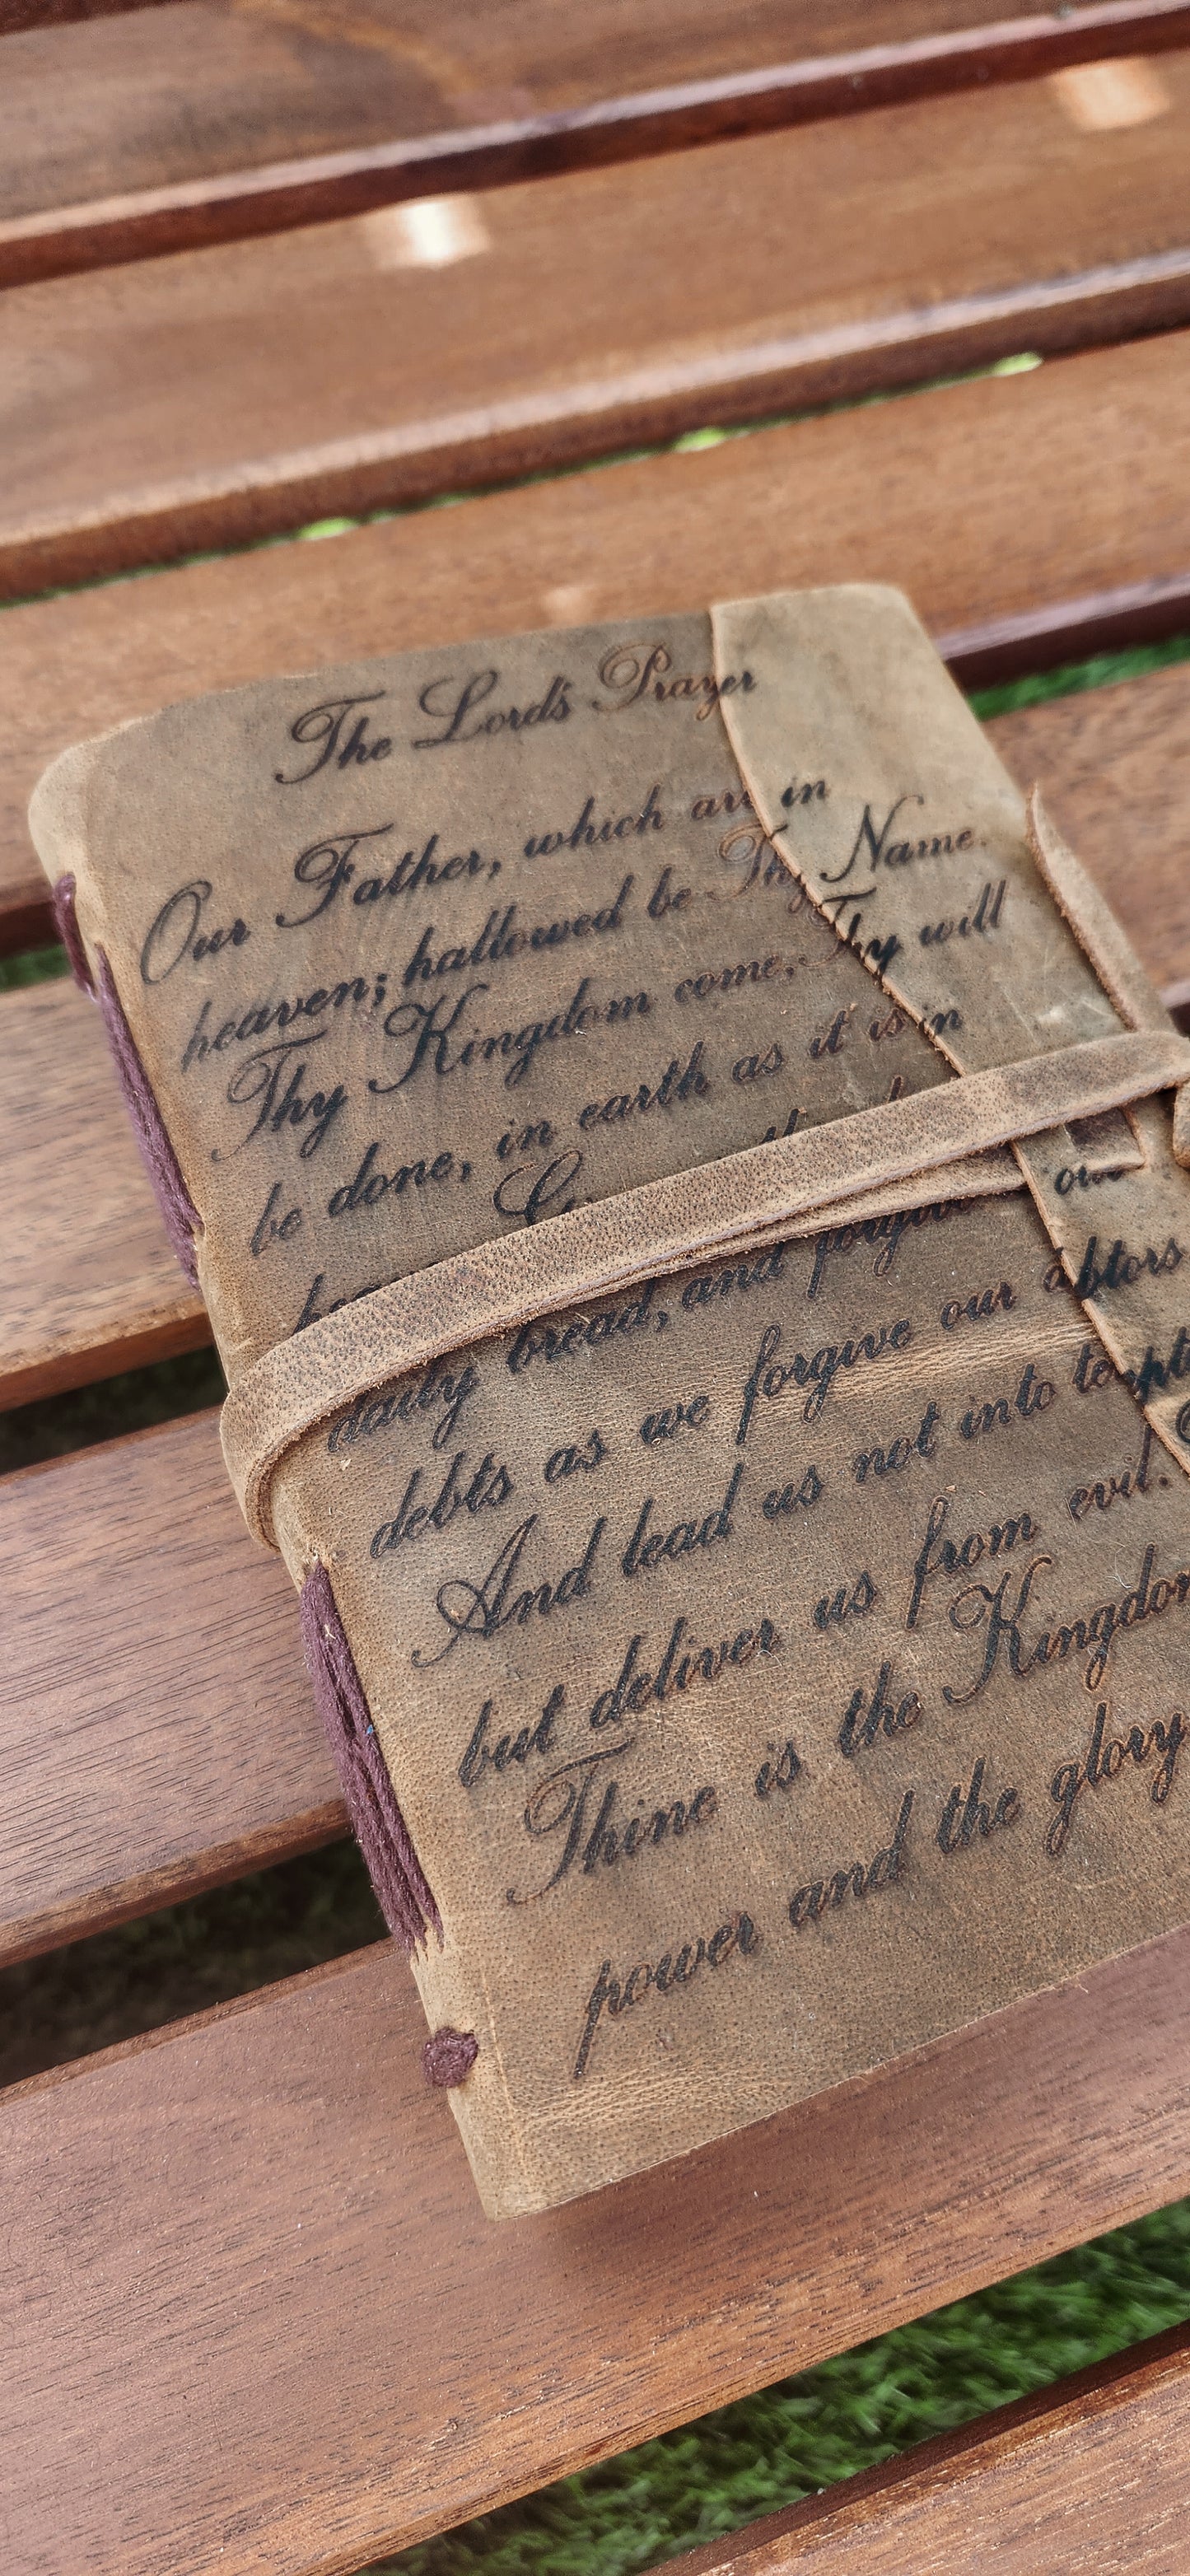 The Lord's Prayer
Our Father, which are in
heaven; hallowed be Thy Name.
Thy Kingdom come, Thy will
be done, in earth as it is in
our
daily bread, and forgive
debts as we forgive our
And lead us not into
but deliver us from evil.
Thine is the Kingdom
power and the glory